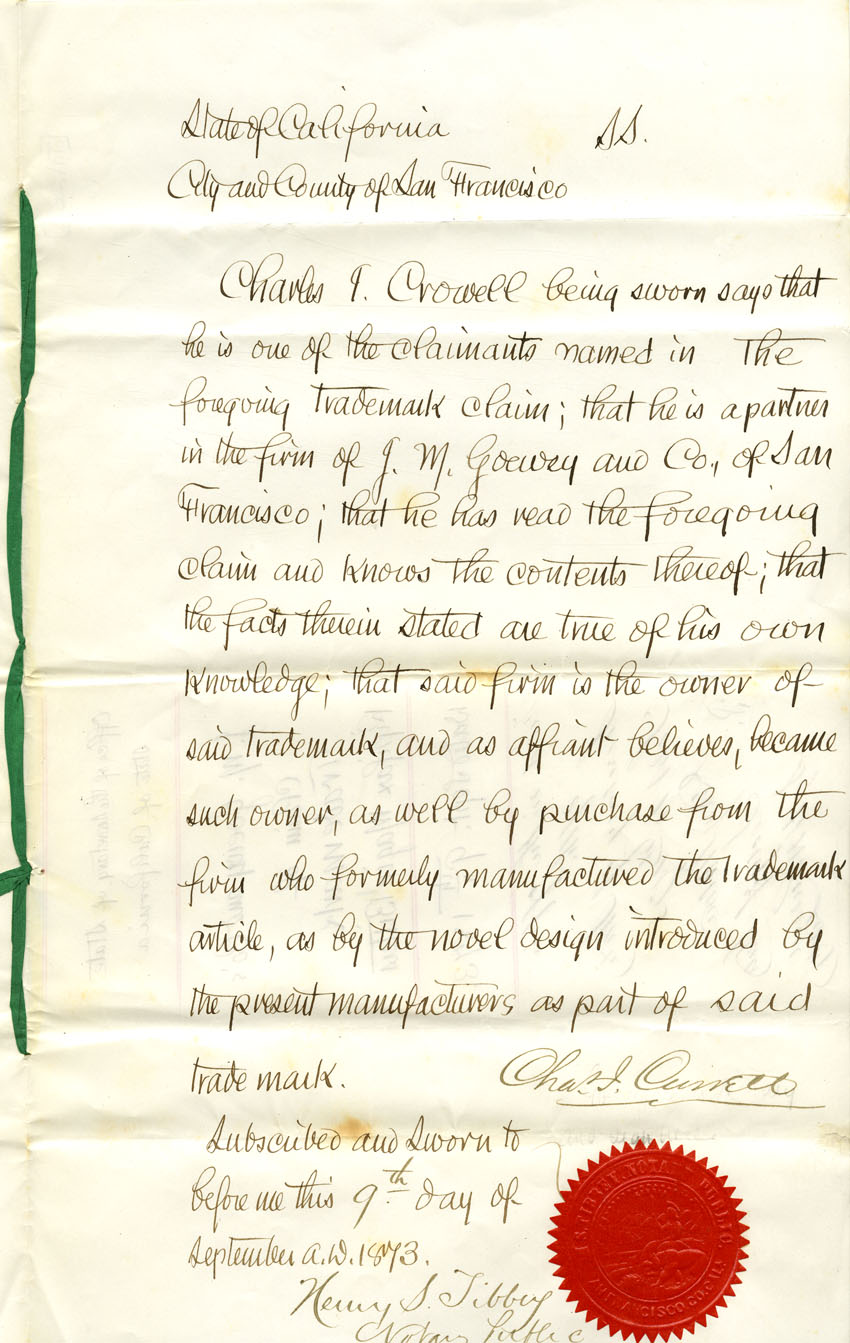 State of California SS.
City and County of San Francisco
Charles I. Crowell being sworn says that
he is one of the claimants named in the
foregoing trademark claim; that he is a partner
in the firm of J. M. Goewey and Co., of San
Francisco; that he has read the foregoing
claim and knows the contents thereof; that
the facts therein stated are true of his own
knowledge; that said firm is the owner of
said trademark, and as affiant believes, became
such owner, as well by purchase from the
firm who formerly manufactured the trademark
article, as by the novel design introduced by
the present manufacturers as part of said
trade mark.
Chas. I. Crowell
Subscribed and Sworn to
before me this 9th day of
September A.D. 1873.
Henry S. Tibbey
Notary Public